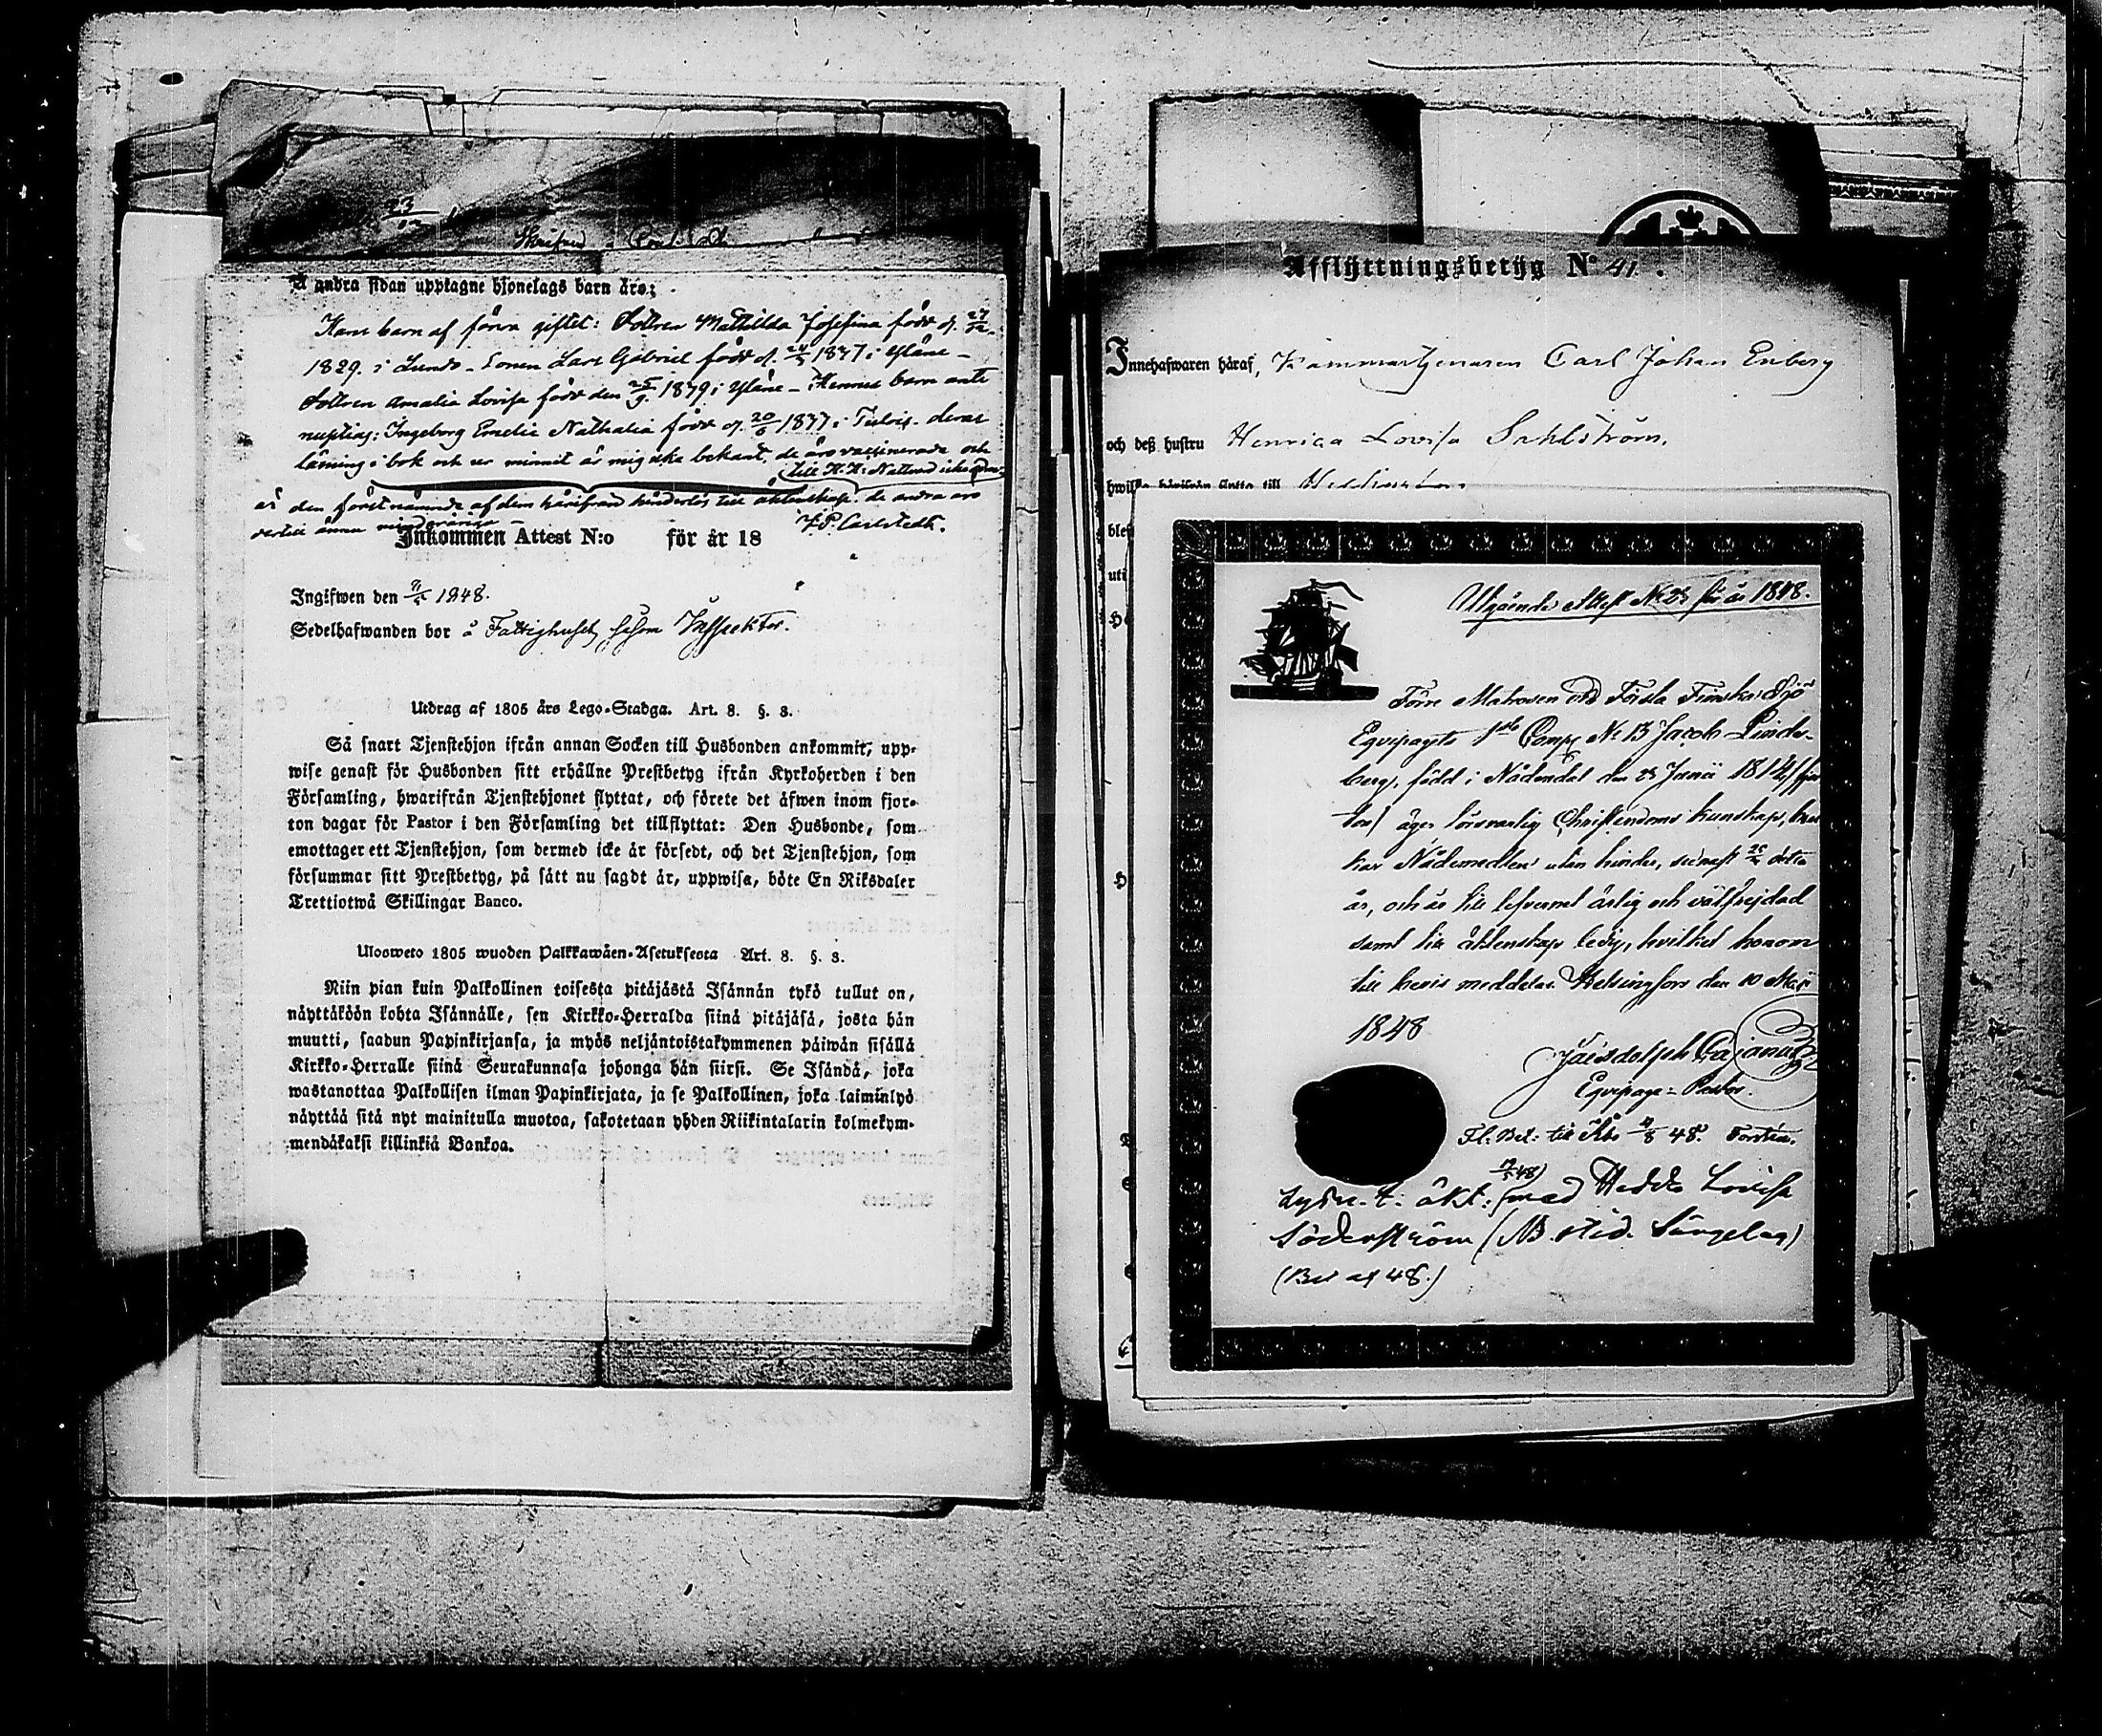 23
Å andra sidan upptagne hjonelags barn äro;
Hans barn af förra giftet: Dottren Mathilda Josefina född d.
1829. i Lundo - Sonen Lars Gabriel född d. 24/5 1837 i Yläne -
Dottren Amalia Lovisa född den 25/9 1839 i Yläne - Hennes barn ante
nuptias: Ingeborg Emelie Nathalia född d. 1837 i deras
läsning i bok och ur minnet är mig icke bekant, de äro vaccinerade och
till H. H. Nattvard
är den förstnämnde af dem härifrån hinderlös till äktenskap. de andra äro
dertill ännu minderåriga -
Inkommen Attest N:o för år 18
Ingifwen den 1848.
Sedelhafwanden bor å Fattighuset såsom Inspektor.
Utdrag af 1805 års Lego-Stadga. Art. 8. §. 3.
Så snart Tjenstehjon ifrån annan Socken till Husbonden ankommit, upp-
wise genast för Husbonden sitt erhållne Prestbetyg ifrån Kyrkoherden i den
Församling, hwarifrån Tjenstehjonet flyttat, och förete det äfwen inom fjor-
ton dagar för Pastor i den Församling det tillflyttat: Den Husbonde, som
emottager ett Tjenstehjon, som dermed icke är försedt, och det Tjenstehjon, som
försummar sitt Prestbetyg, på sätt nu sagdt är, uppwisa, böte En Riksdaler
Trettiotwå Skillingar Banco.
Ulosweto 1805 wuoden Palkkawäen-Asetuksesta Art. 8. §. 3.
Niin pian kuin Palkollinen toisesta pitäjästä Isännän tykö tullut on,
näyttäköön kohta Isännälle, sen Kirkko-Herralda siinä pitäjäsä, josta hän
muutti, saadun Papinkirjansa, ja myös neljäntoistakymmenen päiwän sisällä
Kirkko-Herralle siinä Seurakunnasa johonga hän siirsi. Se Isändä, joka
wastanottaa Palkollisen ilman Papinkirjata, ja se Palkollinen, joka laiminlyö
näyttää sitä nyt mainitulla muotoa, sakotetaan yhden Riikintalarin kolmekym-
mendäkaksi killinkiä Bankoa.
Afflyttningsbetyg No 41.
Innehafwaren häraf, Kammartjenaren Carl Johan Enberg
och deß hustru Henrica Lovisa Sahlström,
Utgående Attest No 23 för år 1848.
Förre Matrosen vid Första Finska Sjö
Equipagets 1sta Comp. No 13 Jacob Linde-
berg, född i Nådendal den 23 Junii 1814 (fjor
ton) äger försvarlig Christendoms kunskap, bru
kar Nådemedlen utan hinder, senast detta
år, och är till lefvernet ärlig och välfrejdad
samt till äktenskap ledig, hvilket honom
till bevis meddelas. Helsingfors den 10 Maji
1848
Cajanus
Equipage-Pastor.
Fl. Bet: till Åbo 48.
Lysn. t. äkt: med Hedda Lovisa
Söderström
(Bet af 48.)